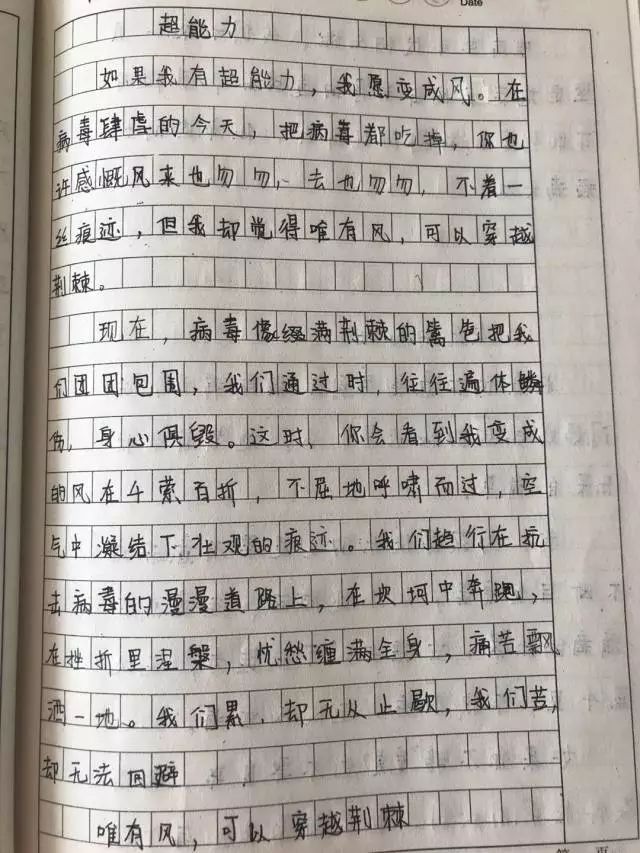 Date
超能力
如果我有超能力，我愿变成风。在
病毒肆虐的今天，把病毒都吃掉，你也
许感慨风来也匆匆，去也匆匆，不着一
丝痕迹，但我却觉得唯有风，可以穿越
荆棘。
现在，病毒像缀满荆棘的篱笆把我
们团团包围，我们通过时，往往遍体鳞
伤，身心俱毁。这时，你会看到我变成
的风在千萦百折，不屈地呼啸而过，空
气中凝结下壮观的痕迹。我们趋行在抗
去病毒的漫漫道路上，在坎坷中奔跑，
在挫折里涅槃，忧愁缠满全身，痛苦飘
洒一地。我们累，却无从止歇，我们苦，
却无法回避
唯有风，可以穿越荆棘
第 页